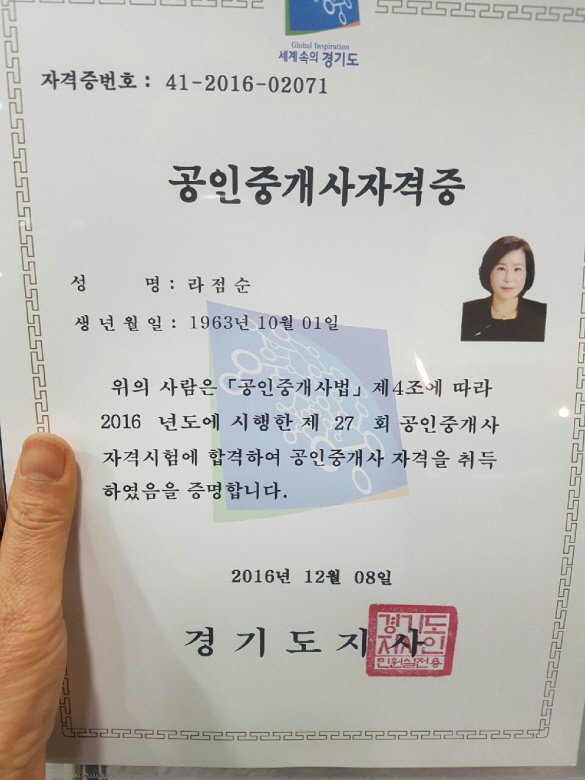 Global Inspiration
세계속의 경기도
자격증번호 : 41-2016-02071
공인중개사자격증
성 명 : 라점순
생년월일 : 1963년 10월 01일
위의 사람은 「공인중개사법」 제4조에 따라
2016 년도에 시행한 제 27 회 공인중개사
자격시험에 합격하여 공인중개사 자격을 취득
하였음을 증명합니다.
2016년 12월 08일
경기도지사
경기도
지사인
민원실전용